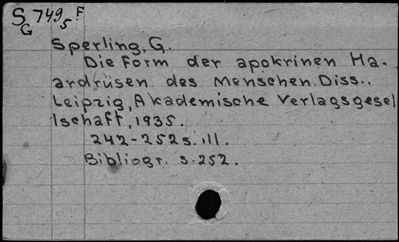 S 749 F
G 5
Sperling, G.
Die Form der apokrinen Ha-
ardrüsen des Menschen. Diss.,
Leipzig, Akademische Verlagsgesel
lschaft, 1935.
242-252 s. ill.
Bibliogr. s. 252.